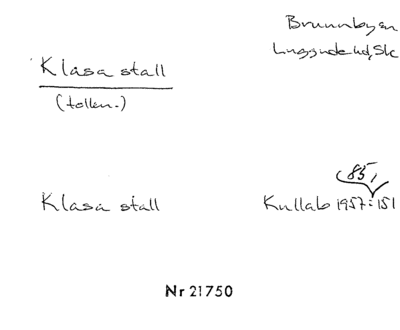 Brunnbyen
Luggude hd, Sk
Klåsa stall
(tollen.)
(85,
Klasa stall Kullab 1957:151
Nr 21750